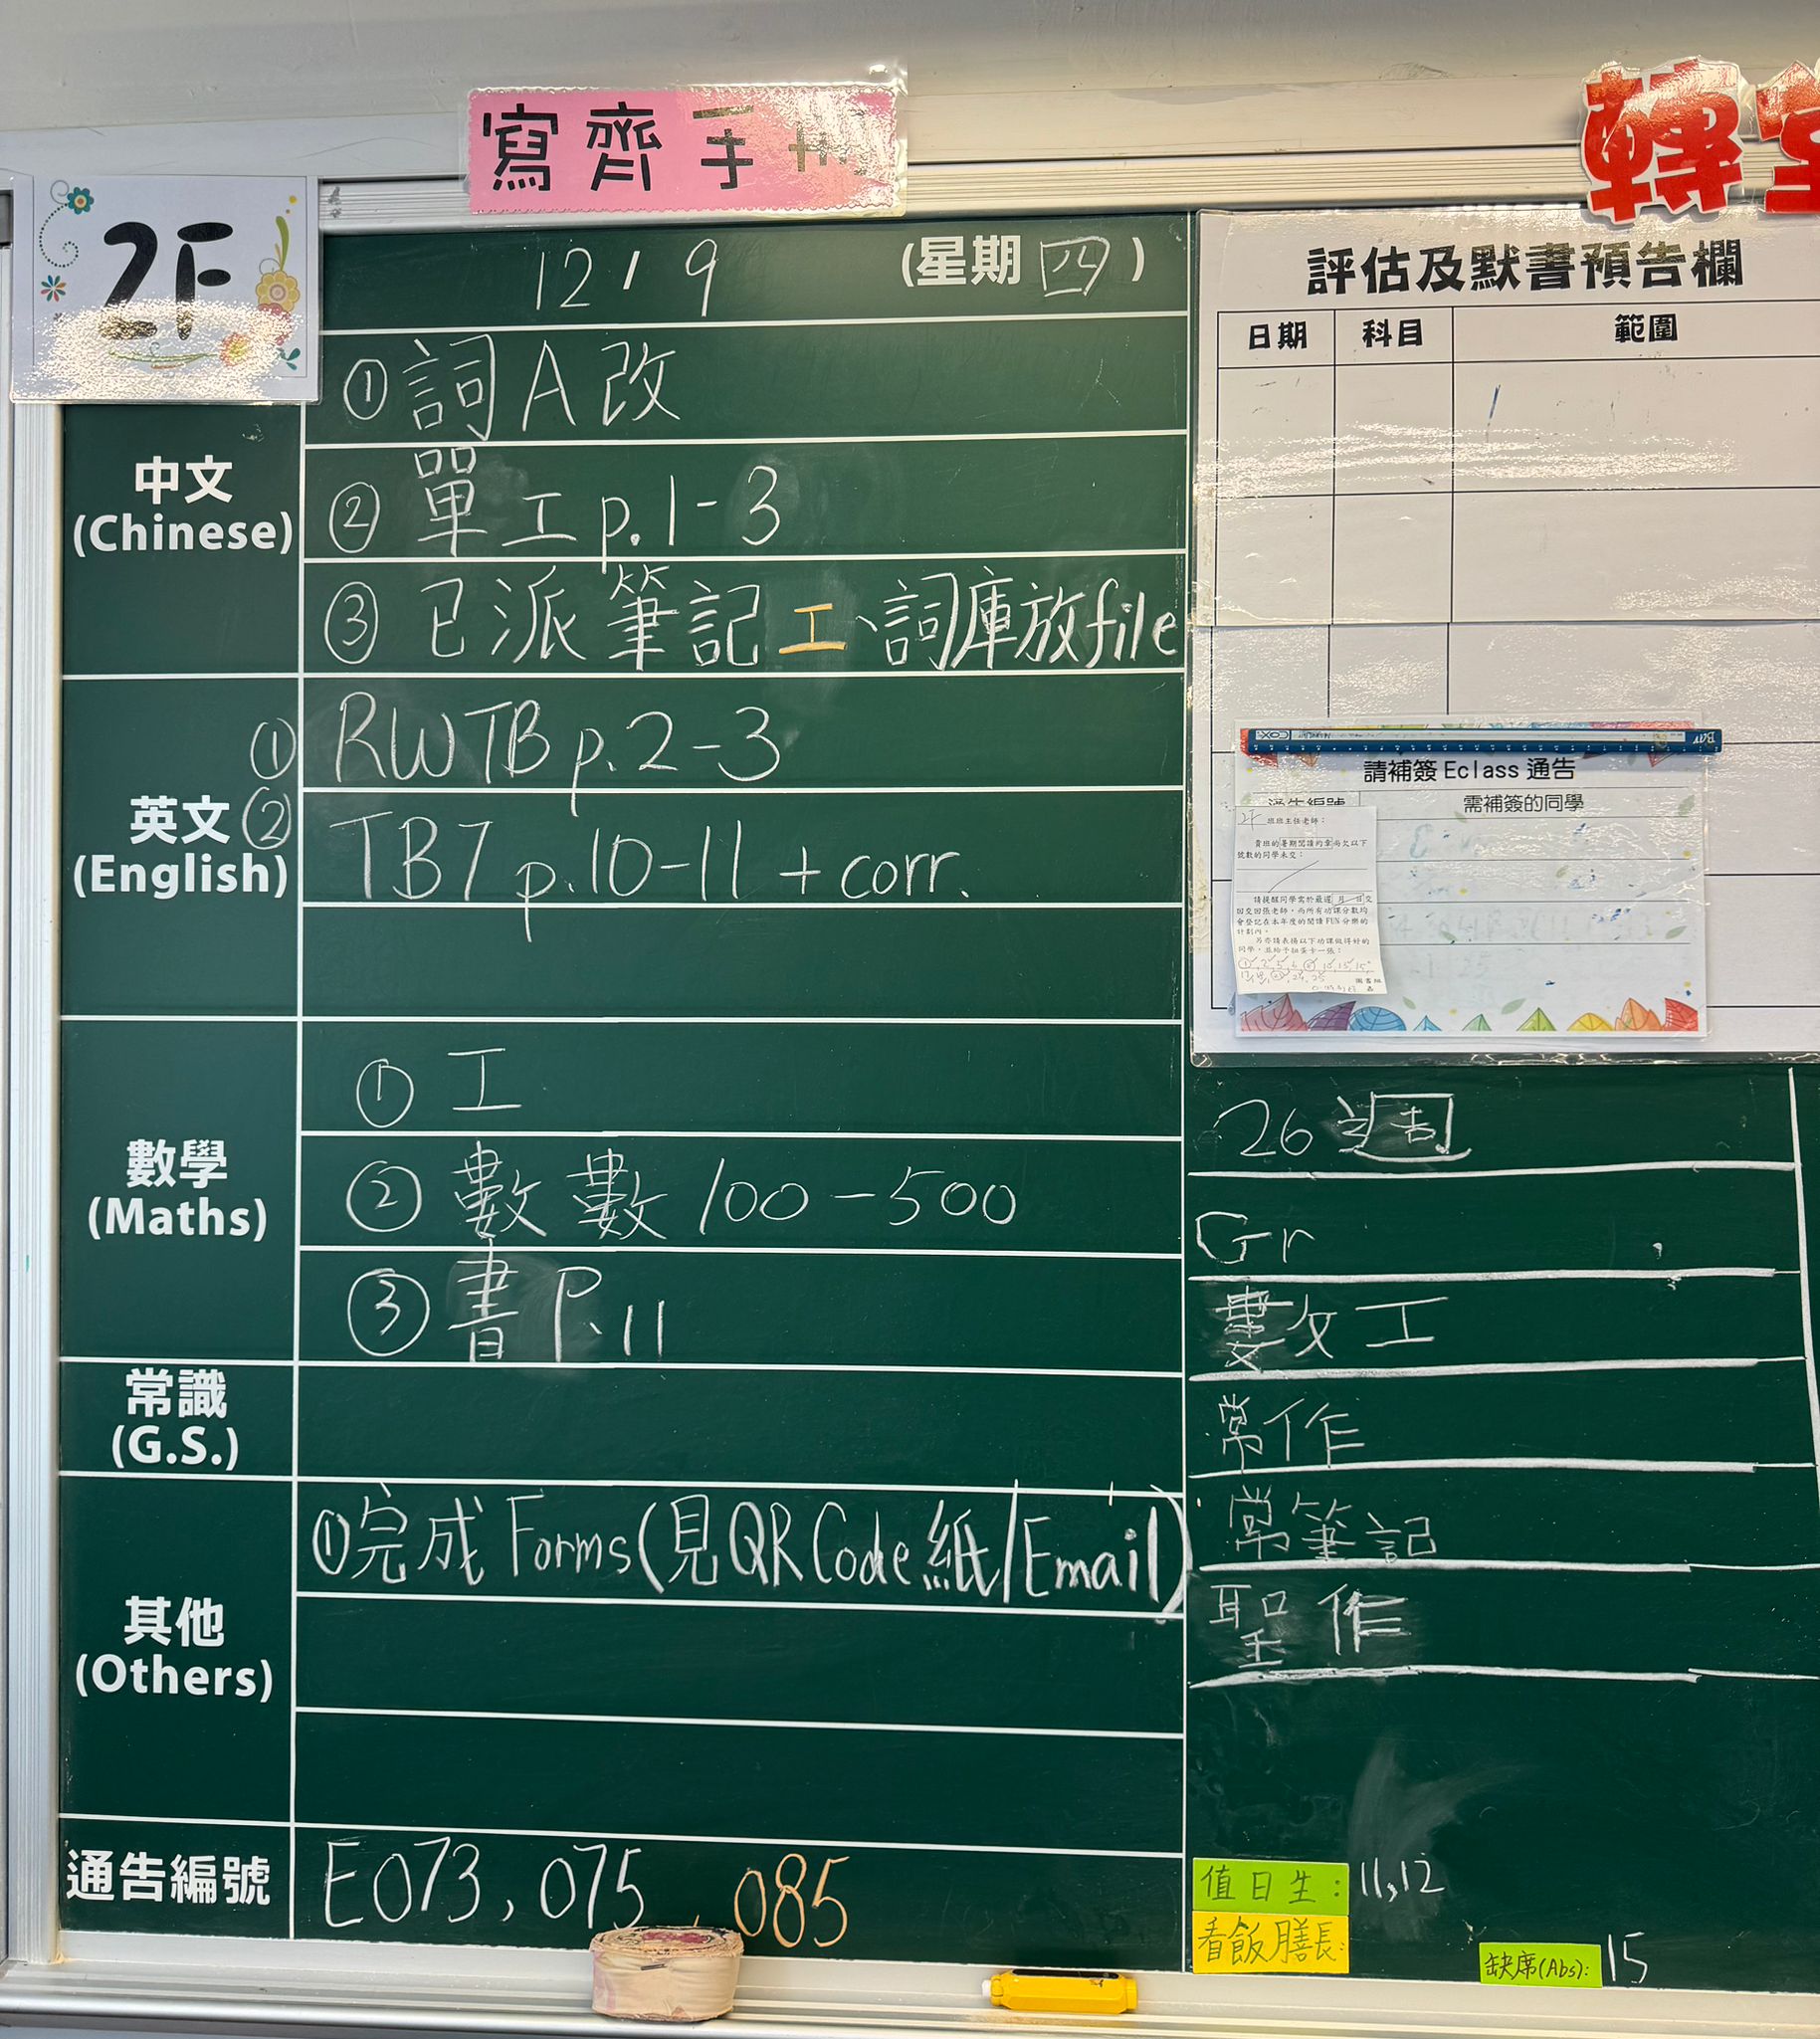 寫齊手
轉
2F
12/9 (星期四)
中文
(Chinese)
①詞A改
②單工p.1-3
③已派筆記工、詞庫放file
英文
(English)
①RWTB p.2-3
②TB7 p.10-11 + corr.
數學
(Maths)
①工
②數數100-500
③書P.11
常識
(G.S.)
其他
(Others)
①完成Forms(見QR Code紙/Email)
通告編號
E073, 075, 085
評估及默書預告欄
日期 科目 範圍
請補簽Eclass通告
通告編號 需補簽的同學
2F 班班主任老師：
貴班的暑期閱讀約章尚欠以下
號數的同學未交：
26週
Gr
數工
常作
常筆記
聖作
值日生：11,12
看飯膳長:
缺席(Abs): 15